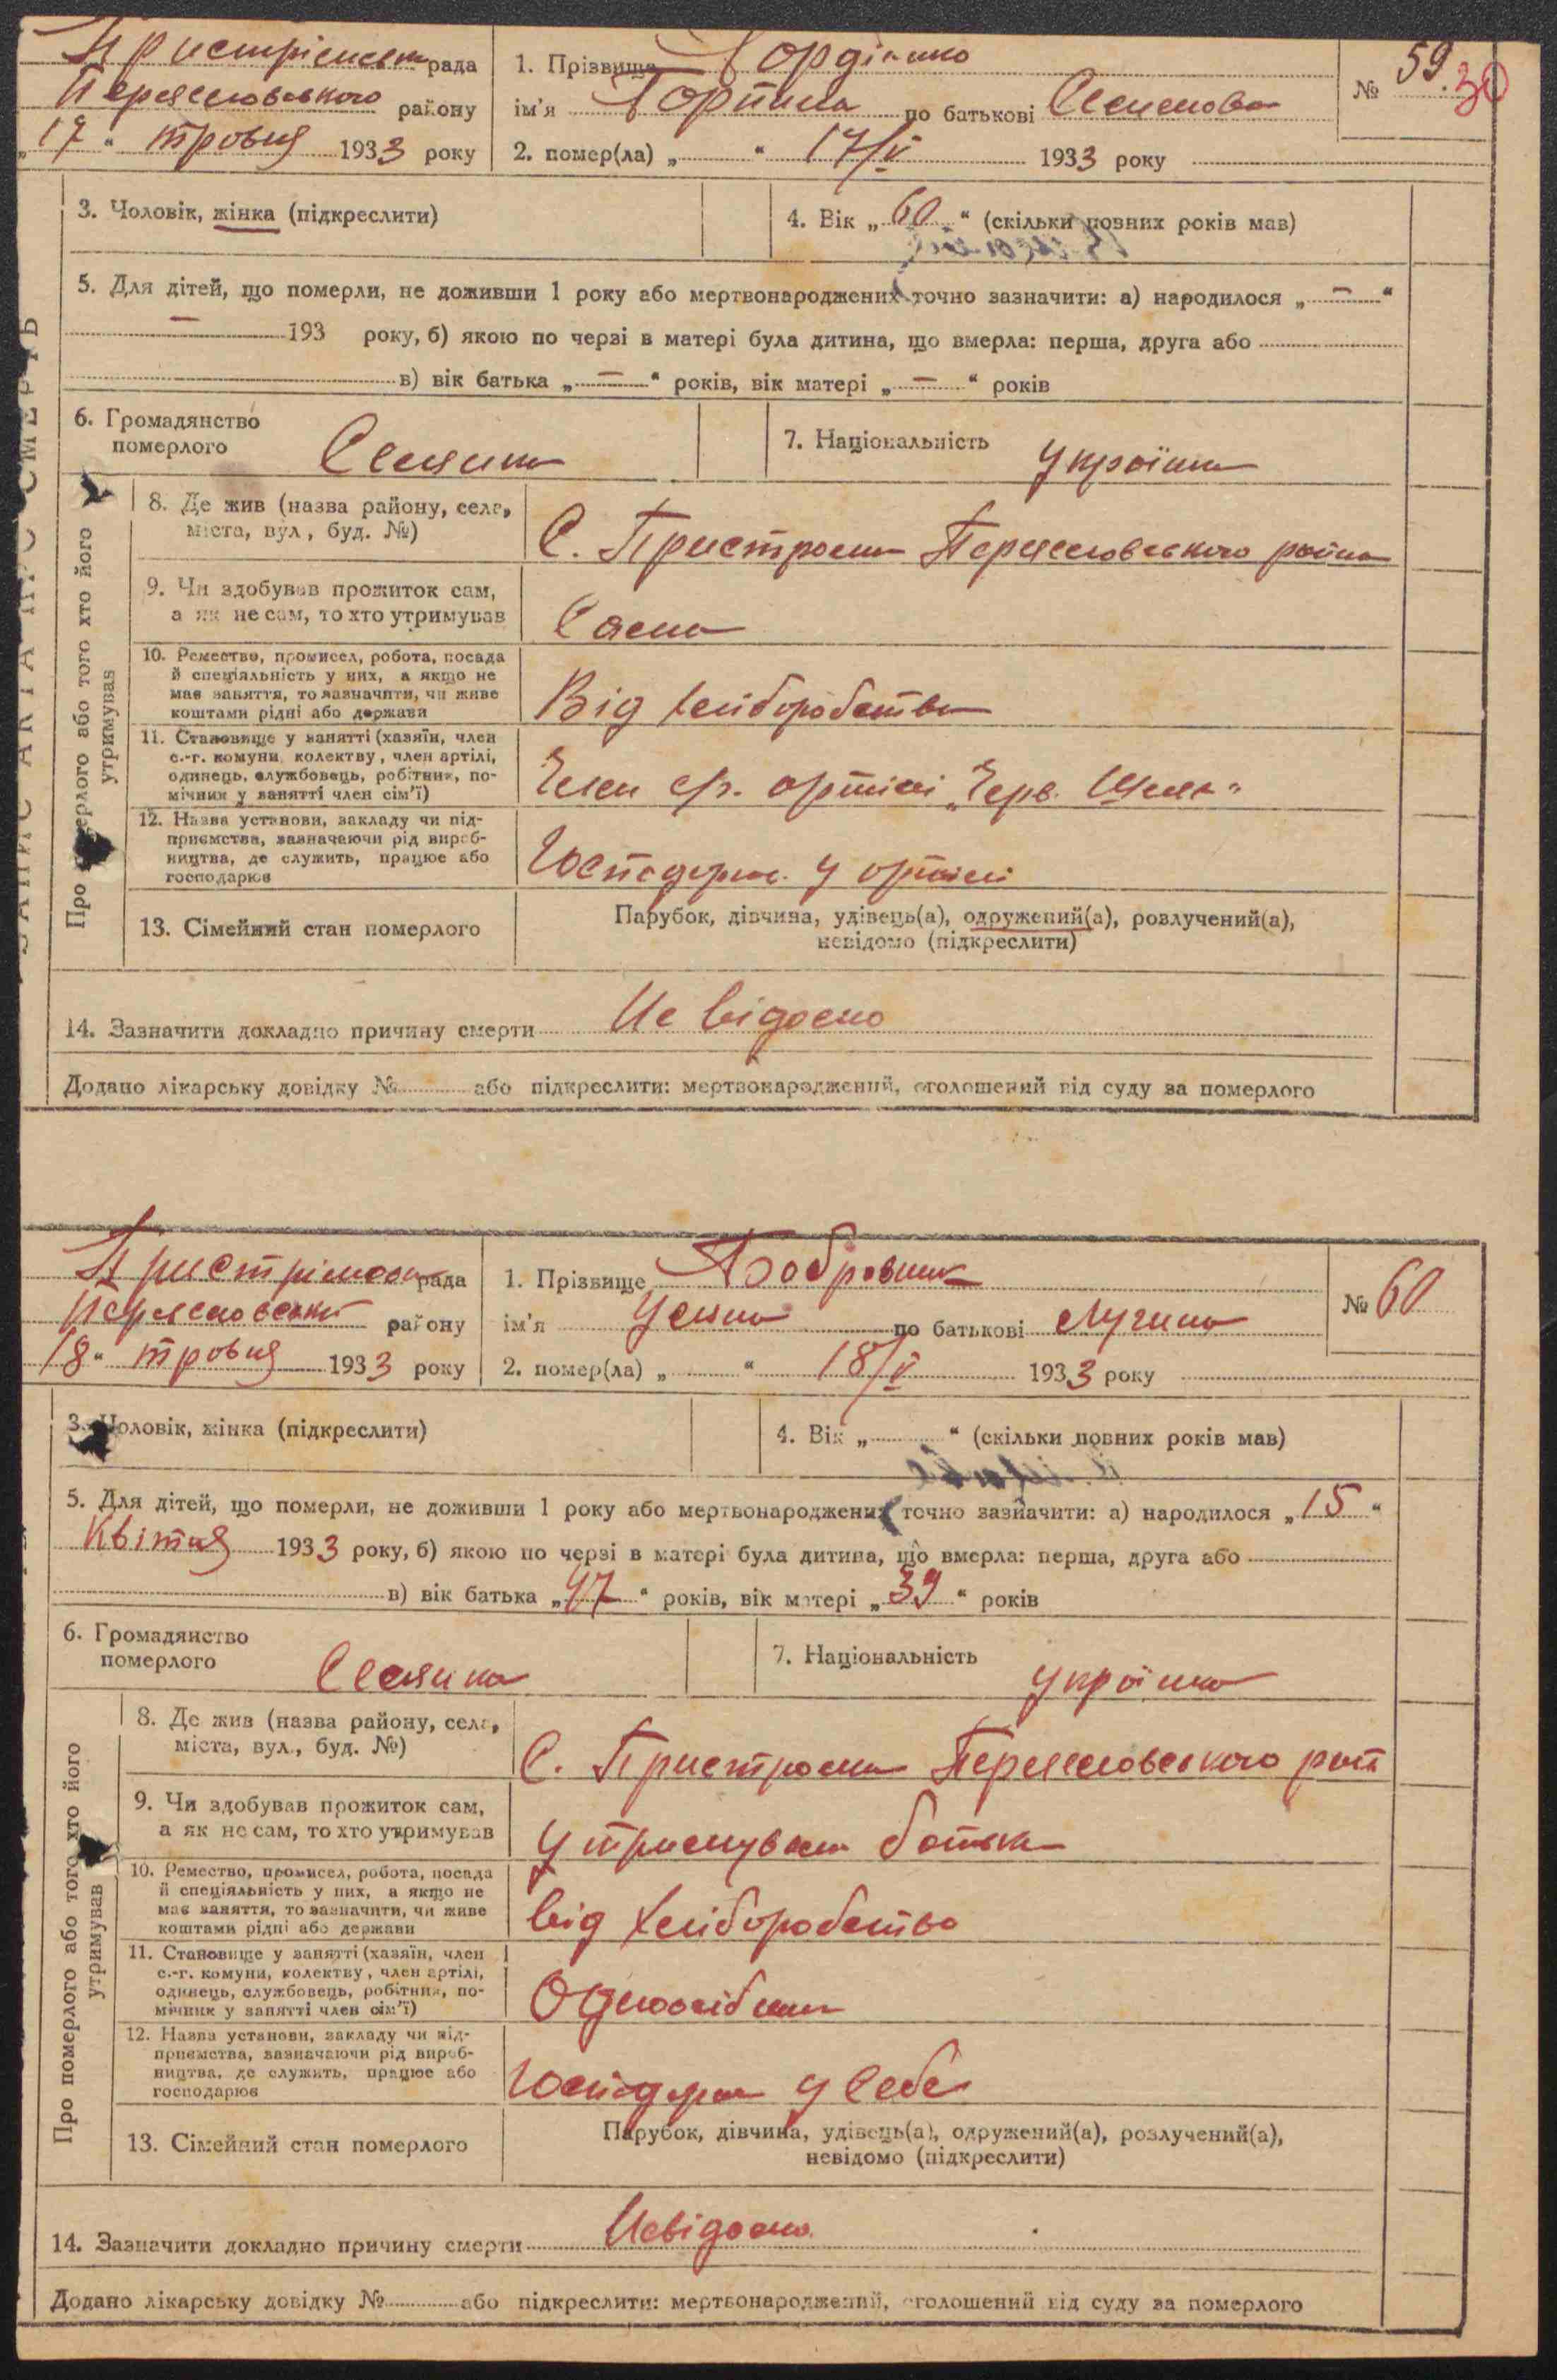 Пристрімськ рада
Переяславського району
„17“ травня 1933 року
1. Прізвище Гордієнко
ім'я Горпина по батькові Семенова
2. помер(ла) „ “ 17/V 1933 року
№ 59. 30
3. Чоловік, жінка (підкреслити)
4. Вік „60“ (скільки повних років мав)
5. Для дітей, що померли, не доживши 1 року або мертвонароджених точно зазначити: а) народилося „—“
— 193 року, б) якою по черзі в матері була дитина, що вмерла: перша, друга або
в) вік батька „—“ років, вік матері „—“ років
6. Громадянство
померлого Селянка
7. Національність Українка
Про померлого або того хто його
утримував
8. Де жив (назва району, села,
міста, вул., буд. №)
С. Пристроми Переяславського району
9. Чи здобував прожиток сам,
а як не сам, то хто утримував
Сама
10. Ремество, промисел, робота, посада
й спеціяльність у них, а якщо не
має заняття, то зазначити, чи живе
коштами рідні або держави
Від хліборобства
11. Становище у занятті (хазяїн, член
с.-г. комуни, колектву, член артілі,
одинець, службовець, робітник, по-
мічник у занятті член сім'ї)
Член с/г. артілі „Черв. Шлях“
12. Назва установи, закладу чи під-
приємства, зазначаючи рід вироб-
ництва, де служить, працює або
господарює
Господарює у артілі
13. Сімейний стан померлого
Парубок, дівчина, удівець(а), одружений(а), розлучений(а),
невідомо (підкреслити)
14. Зазначити докладно причину смерти Не відомо
Додано лікарську довідку № або підкреслити: мертвонароджений, оголошений від суду за померлого
Пристрімськ рада
Переяславський району
18“ травня 1933 року
1. Прізвище Бобровник
ім'я Уляна по батькові Лукина
2. помер(ла) „ “ 18/V 1933 року
№ 60
3. Чоловік, жінка (підкреслити)
4. Вік „ “ (скільки повних років мав)
5. Для дітей, що померли, не доживши 1 року або мертвонароджених точно зазначити: а) народилося „15“
Квітня 1933 року, б) якою по черзі в матері була дитина, що вмерла: перша, друга або
в) вік батька „47“ років, вік матері „39“ років
6. Громадянство
померлого Селянка
7. Національність Українка
Про померлого або того хто його
утримував
8. Де жив (назва району, села,
міста, вул., буд. №)
С. Пристроми Переяславського рай
9. Чи здобував прожиток сам,
а як не сам, то хто утримував
Утримував батько
10. Ремество, промисел, робота, посада
й спеціяльність у них, а якщо не
має заняття, то зазначити, чи живе
коштами рідні або держави
від хліборобства
11. Становище у занятті (хазяїн, член
с.-г. комуни, колектву, член артілі,
одинець, службовець, робітник, по-
мічник у занятті член сім'ї)
Одноосібник
12. Назва установи, закладу чи під-
приємства, зазначаючи рід вироб-
ництва, де служить, працює або
господарює
Господарює у себе
13. Сімейний стан померлого
Парубок, дівчина, удівець(а), одружений(а), розлучений(а),
невідомо (підкреслити)
14. Зазначити докладно причину смерти Невідомо
Додано лікарську довідку № або підкреслити: мертвонароджений, оголошений від суду за померлого